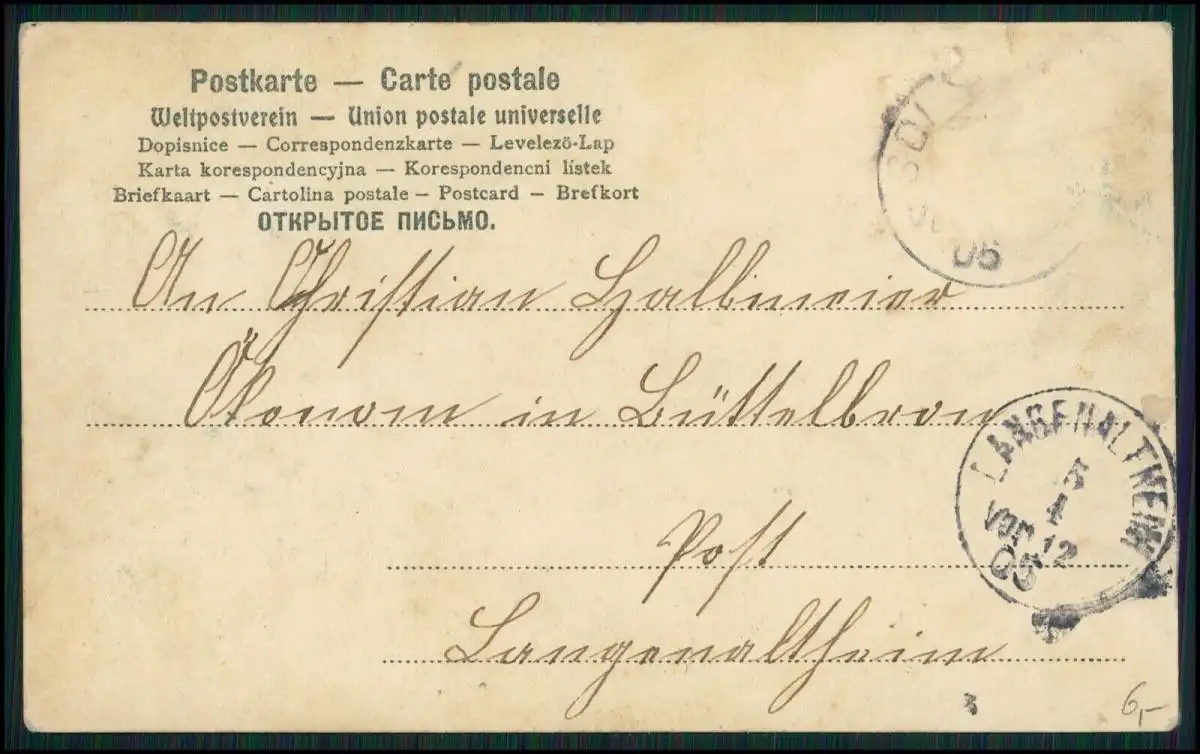 Postkarte — Carte postale
Weltpostverein — Union postale universelle
Dopisnice — Correspondenzkarte — Levelező-Lap
Karta korespondencyjna — Korespondencni lístek
Briefkaart — Cartolina postale — Postcard — Brefkort
ОТКРЫТОЕ ПИСЬМО.
05
An Christian Halbmeier
Ökonom in Büttelbron
LANGENALTHEIM
5
4
Vor 12
05
Post
Langenaltheim
6,-